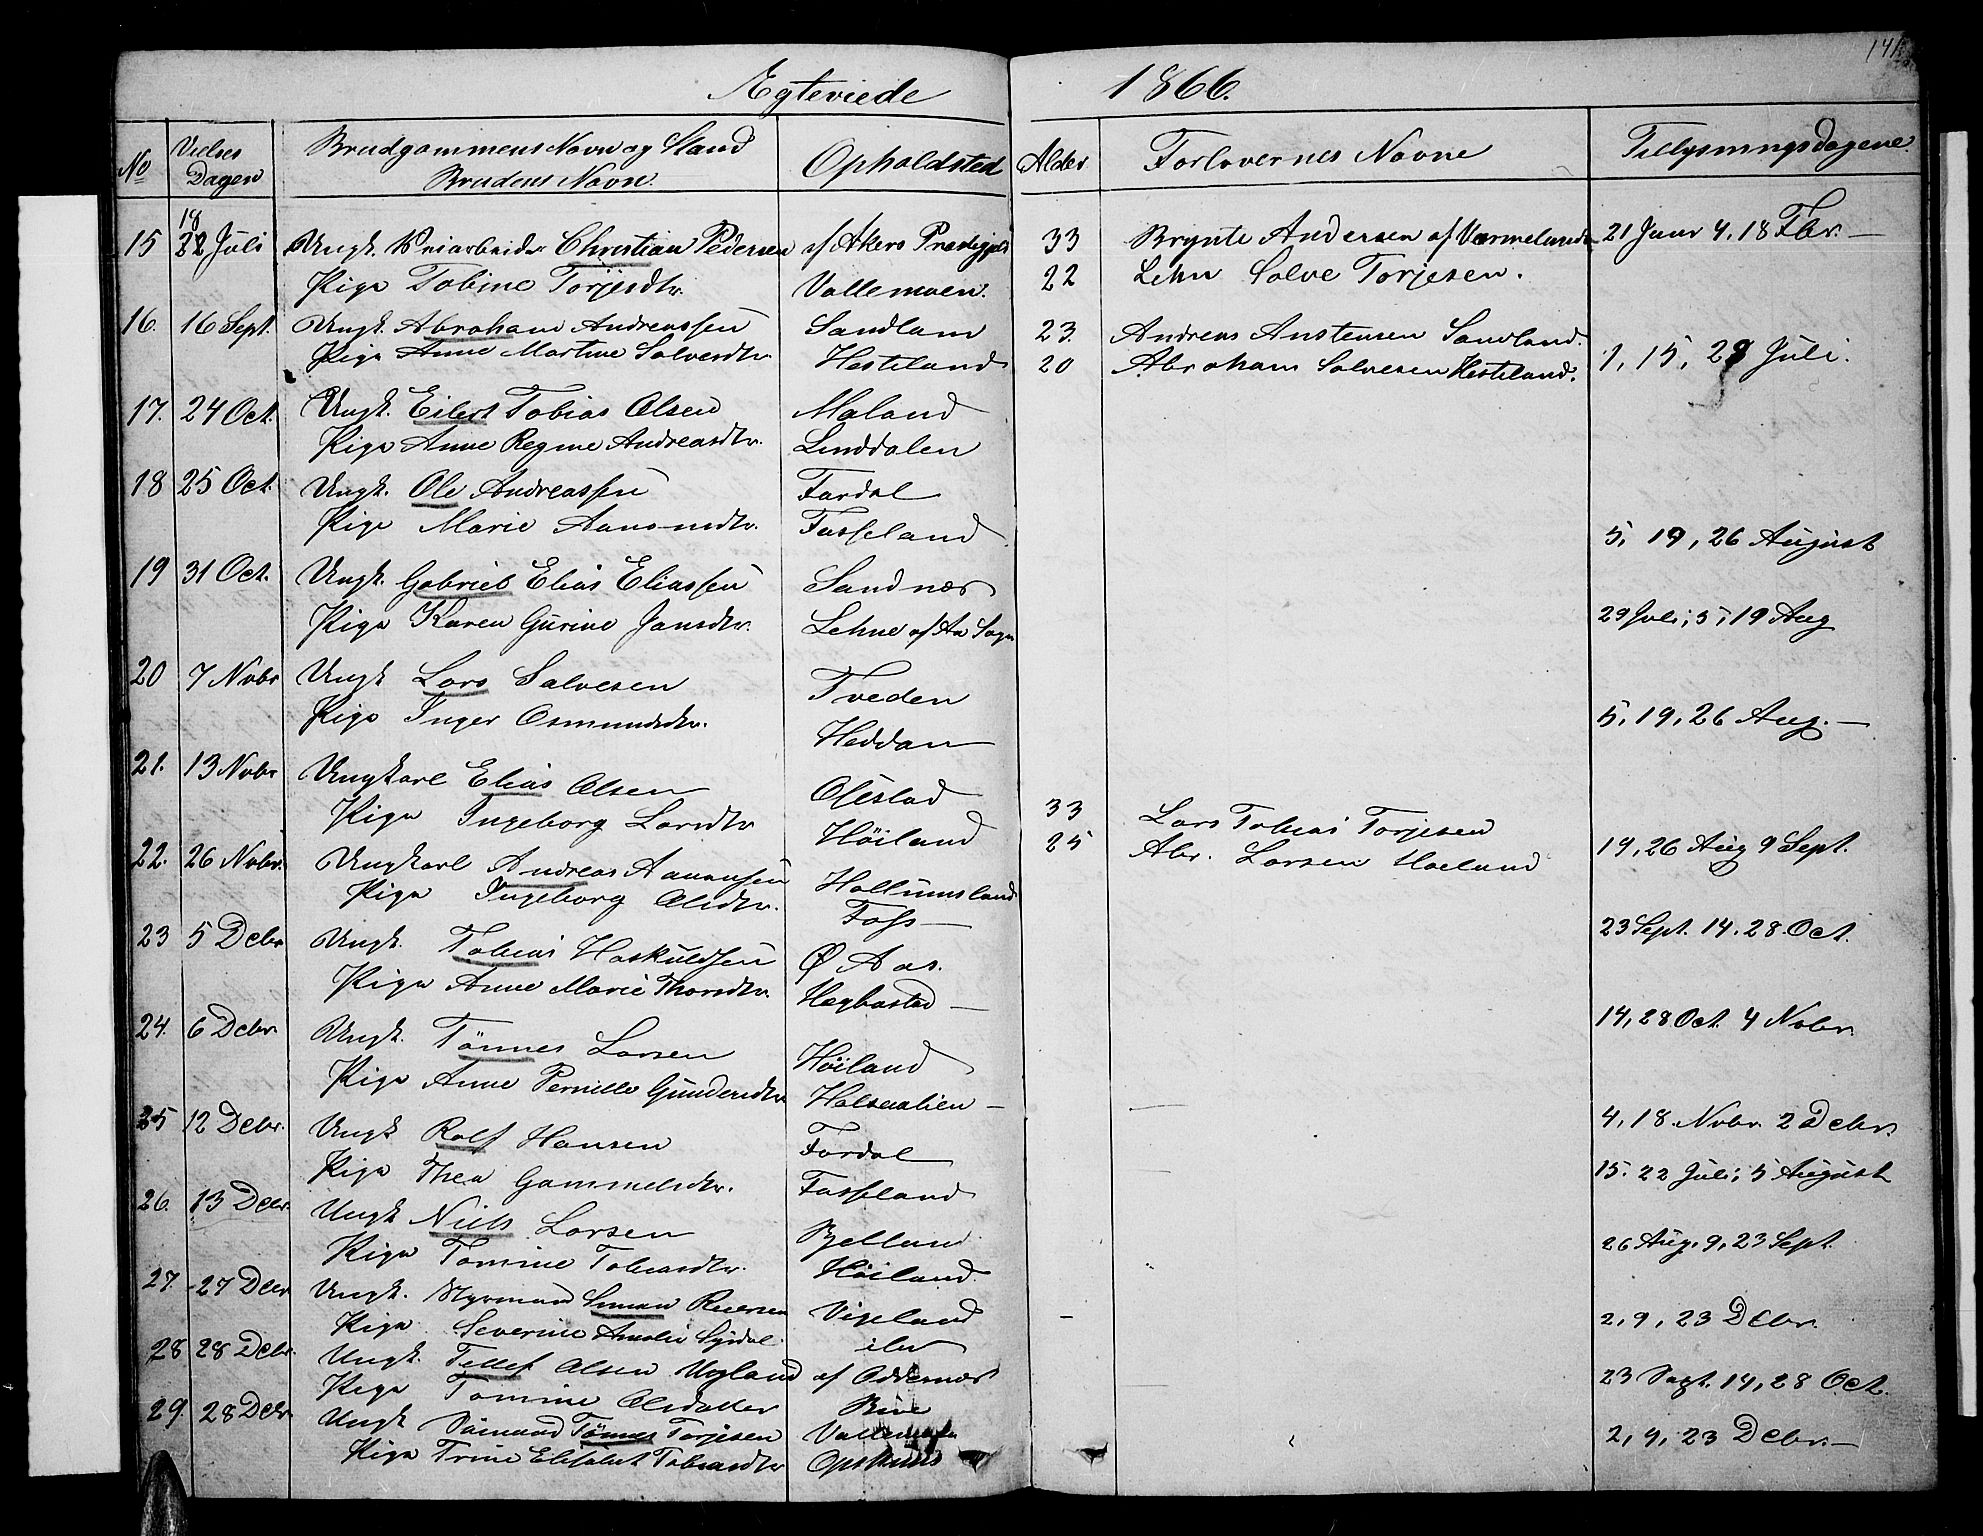 141
Ægteviede 1866.
No Vielses Dagen Brudgommens Navn og Stand Brudens Navn. Opholdsted Alder Forlovernes Navne Tillysningsdagene.
18
15 22 Juli Ungk. Christian Pedersen af Akers 33 Brynte Andersen af Vermeland 21 Janr 4, 18 Fbr. —
Pige Tobine Torjesdtr. Vollemoen. 22 Lehn Salve Torjesen.
16. 16 Sept. Ungk. Abraham Andreassen Sandland 23. Andreas Anstensen Sandland.
Pige Anne Martine Salvesdtr. Hesteland 20 Abraham Salvesen Hesteland. 1, 15, 29 Juli.
17. 24 Oct. Ungk. Eilert Tobias Olsen Moland
Pige Anne Regine Andreasdtr. Linddalen
18 25 Oct. Ungk. Ole Andreassen Fardal
Pige Marie Fasseland 5, 19, 26 August
19 31 Oct. Ungk. Gabriel Elias Eliassen Sandnæs
Pige Karen Gurine Jansdtr. Lehne af Aa Sogn 29 Juli, 5, 19 Aug
20 7 Nvbr Ungk Lars Salvesen Tveden
Pige Inger Osmundsdtr. Heddan 5, 19, 26 Aug. —
21. 13 Nvbr Ungkarl Elias Olsen Olestad 33 Lars Tobias Torjesen
Pige Ingeborg Larsdtr Höiland 25 Abr. Larsen Hoeland 19, 26 Aug 9 Sept.
22. 26 Nvbr. Ungkarl Andreas Aanensen Hallumsland
Pige Ingeborg Olsdtr. Foss — 23 Sept. 14. 28. Oct.
23 5 Debr Ungk. Tobias Haskuldsen Ø Aas.
Pige Anne Marie Thorsdtr. Hægbostad — 14, 28 Oct. 4 Nvbr.
24. 6 Debr. Ungk. Tönnes Larsen Höiland
Pige Anne Pernille Gundersdtr 4, 18. Nvbr. 2 Debr.
25 12 Debr. Ungk Rolf Hansen Fardal
Pige Thea Gammelsdtr. Fasseland 15. 22 Juli, 5 August
26. 13 Debr. Ungk Niels Larsen Bjelland
Pige Tomine Tobiasdtr. Höiland. 26 Aug. 9, 23 Sept.
27. 27 Debr Ungk. Styrmand Simon Reiersen Vigeland
Pige Severine Amalie ibd 2, 9, 23 Debr.
28 28 Debr. Ungk. Tellef Olsen Ugland af Oddernæs
Pige Tomine Olsdatter 23 Sept. 14, 28 Oct.
29. 28 Debr. Ungk Sömand Tönnes Torjesen
Pige Trine Elisabet Tobiasdtr 2, 9, 23 Debr. —